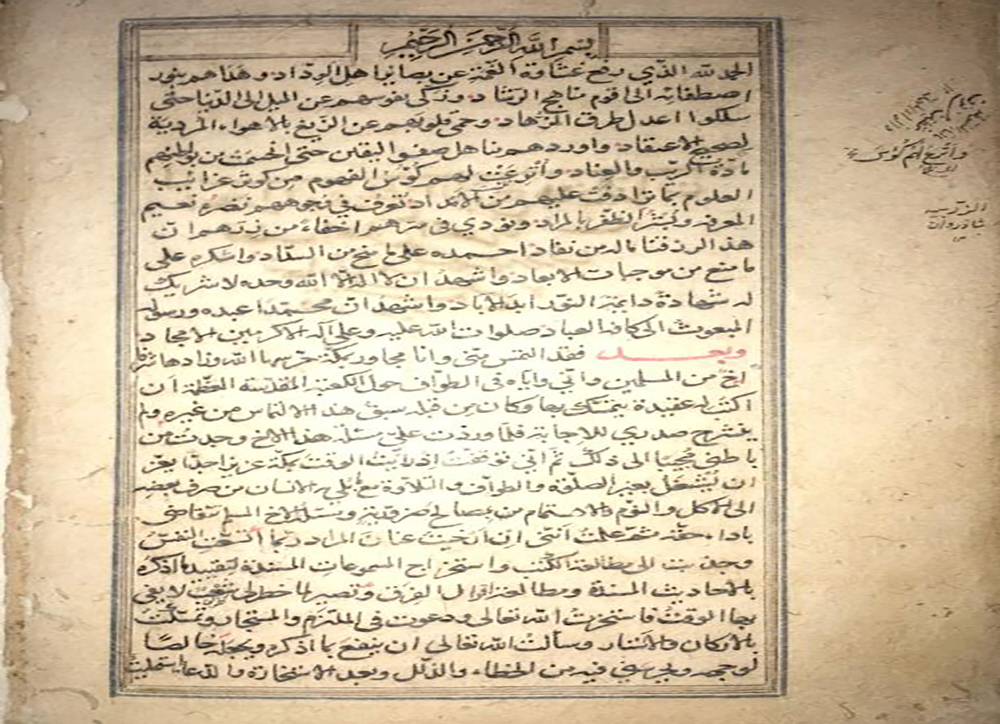 بسم الله الرحمن الرحيم
الحمد لله الذي رفع غشاوة الغمة عن بصائر اهل الوداد وهداهم بنور
اصطفائه الى اقوم مناهج الرشاد وزكى نفوسهم عن الميل الى الدنيا حتى
سلكوا اعدل طرق الزهاد وحمى قلوبهم عن الزيغ بالاهواء المردية
لصحيح الاعتقاد واوردهم مناهل صفو اليقين حتى انحسمت من بواطنهم
مادة الريب والعناد واترعت لهم كؤس الفهوم من كوثر غرائب
العلوم بما ترادفت عليهم من الامداد تعرف في وجوههم نضرة نعيم
المعرفة وبشر الظفر بالمراد ونودي في سرهم اخفاء من زدهم ان
هذا لرزقنا ماله من نفاد احمده على ما منح من السداد واشكره على
ما منع من موجبات الابعاد واشهد ان لا اله الا الله وحده لا شريك
له شهادة دايمة ابد الاباد واشهد ان محمدا عبده ورسوله
المبعوث الى كافة العباد صلوات الله عليه وعلى اله الاكرمين الامجاد
وبعد فقد التمس مني وانا مجاور بمكة حرسها الله وزادها شرفا
اخ من المسلمين واني واياه في الطواف حول الكعبة المقدسة المعظمة ان
اكتب له عقيدة يتمسك بها وكان من قبله سبق هذا الالتماس من غيره ولم
ينشرح صدري للاجابة فلما وردت علي مسئلة هذا الاخ وجدت من
باطني مجيبا الى ذلك ثم اني توقفت اذ رايت الوقت بمكة عزيزا جدا يعز
ان يشتغل بغير الصلوة والطواف والتلاوة مع ما بلي به الانسان من صرف بعضه
الى الاكل والنوم والاهتمام من مصالح ضرورية ومسئلة الاخ المسلم تتقاضى
باداء حقه ثم علمت انني ان ارخيت عنان المراد ربما النفس
وجذبت الى مطالعة الكتب واستخراج المسموعات المسندة لتقييد ما اذكره
بالاحاديث المسندة ومطالعة اقوال الفرق وتصير لا يفي
بها الوقت فاستخرت الله تعالى ودعوت في الملتزم والمستجار وتمسكت
بالاركان والاستار وسألت الله تعالى ان ينفع بما اذكره ويجعله خالصا
لوجهه ويحرسني فيه من الخطاء والزلل وبعد الاستخارة والدعاء
واترع لهم كؤس
شاذروان